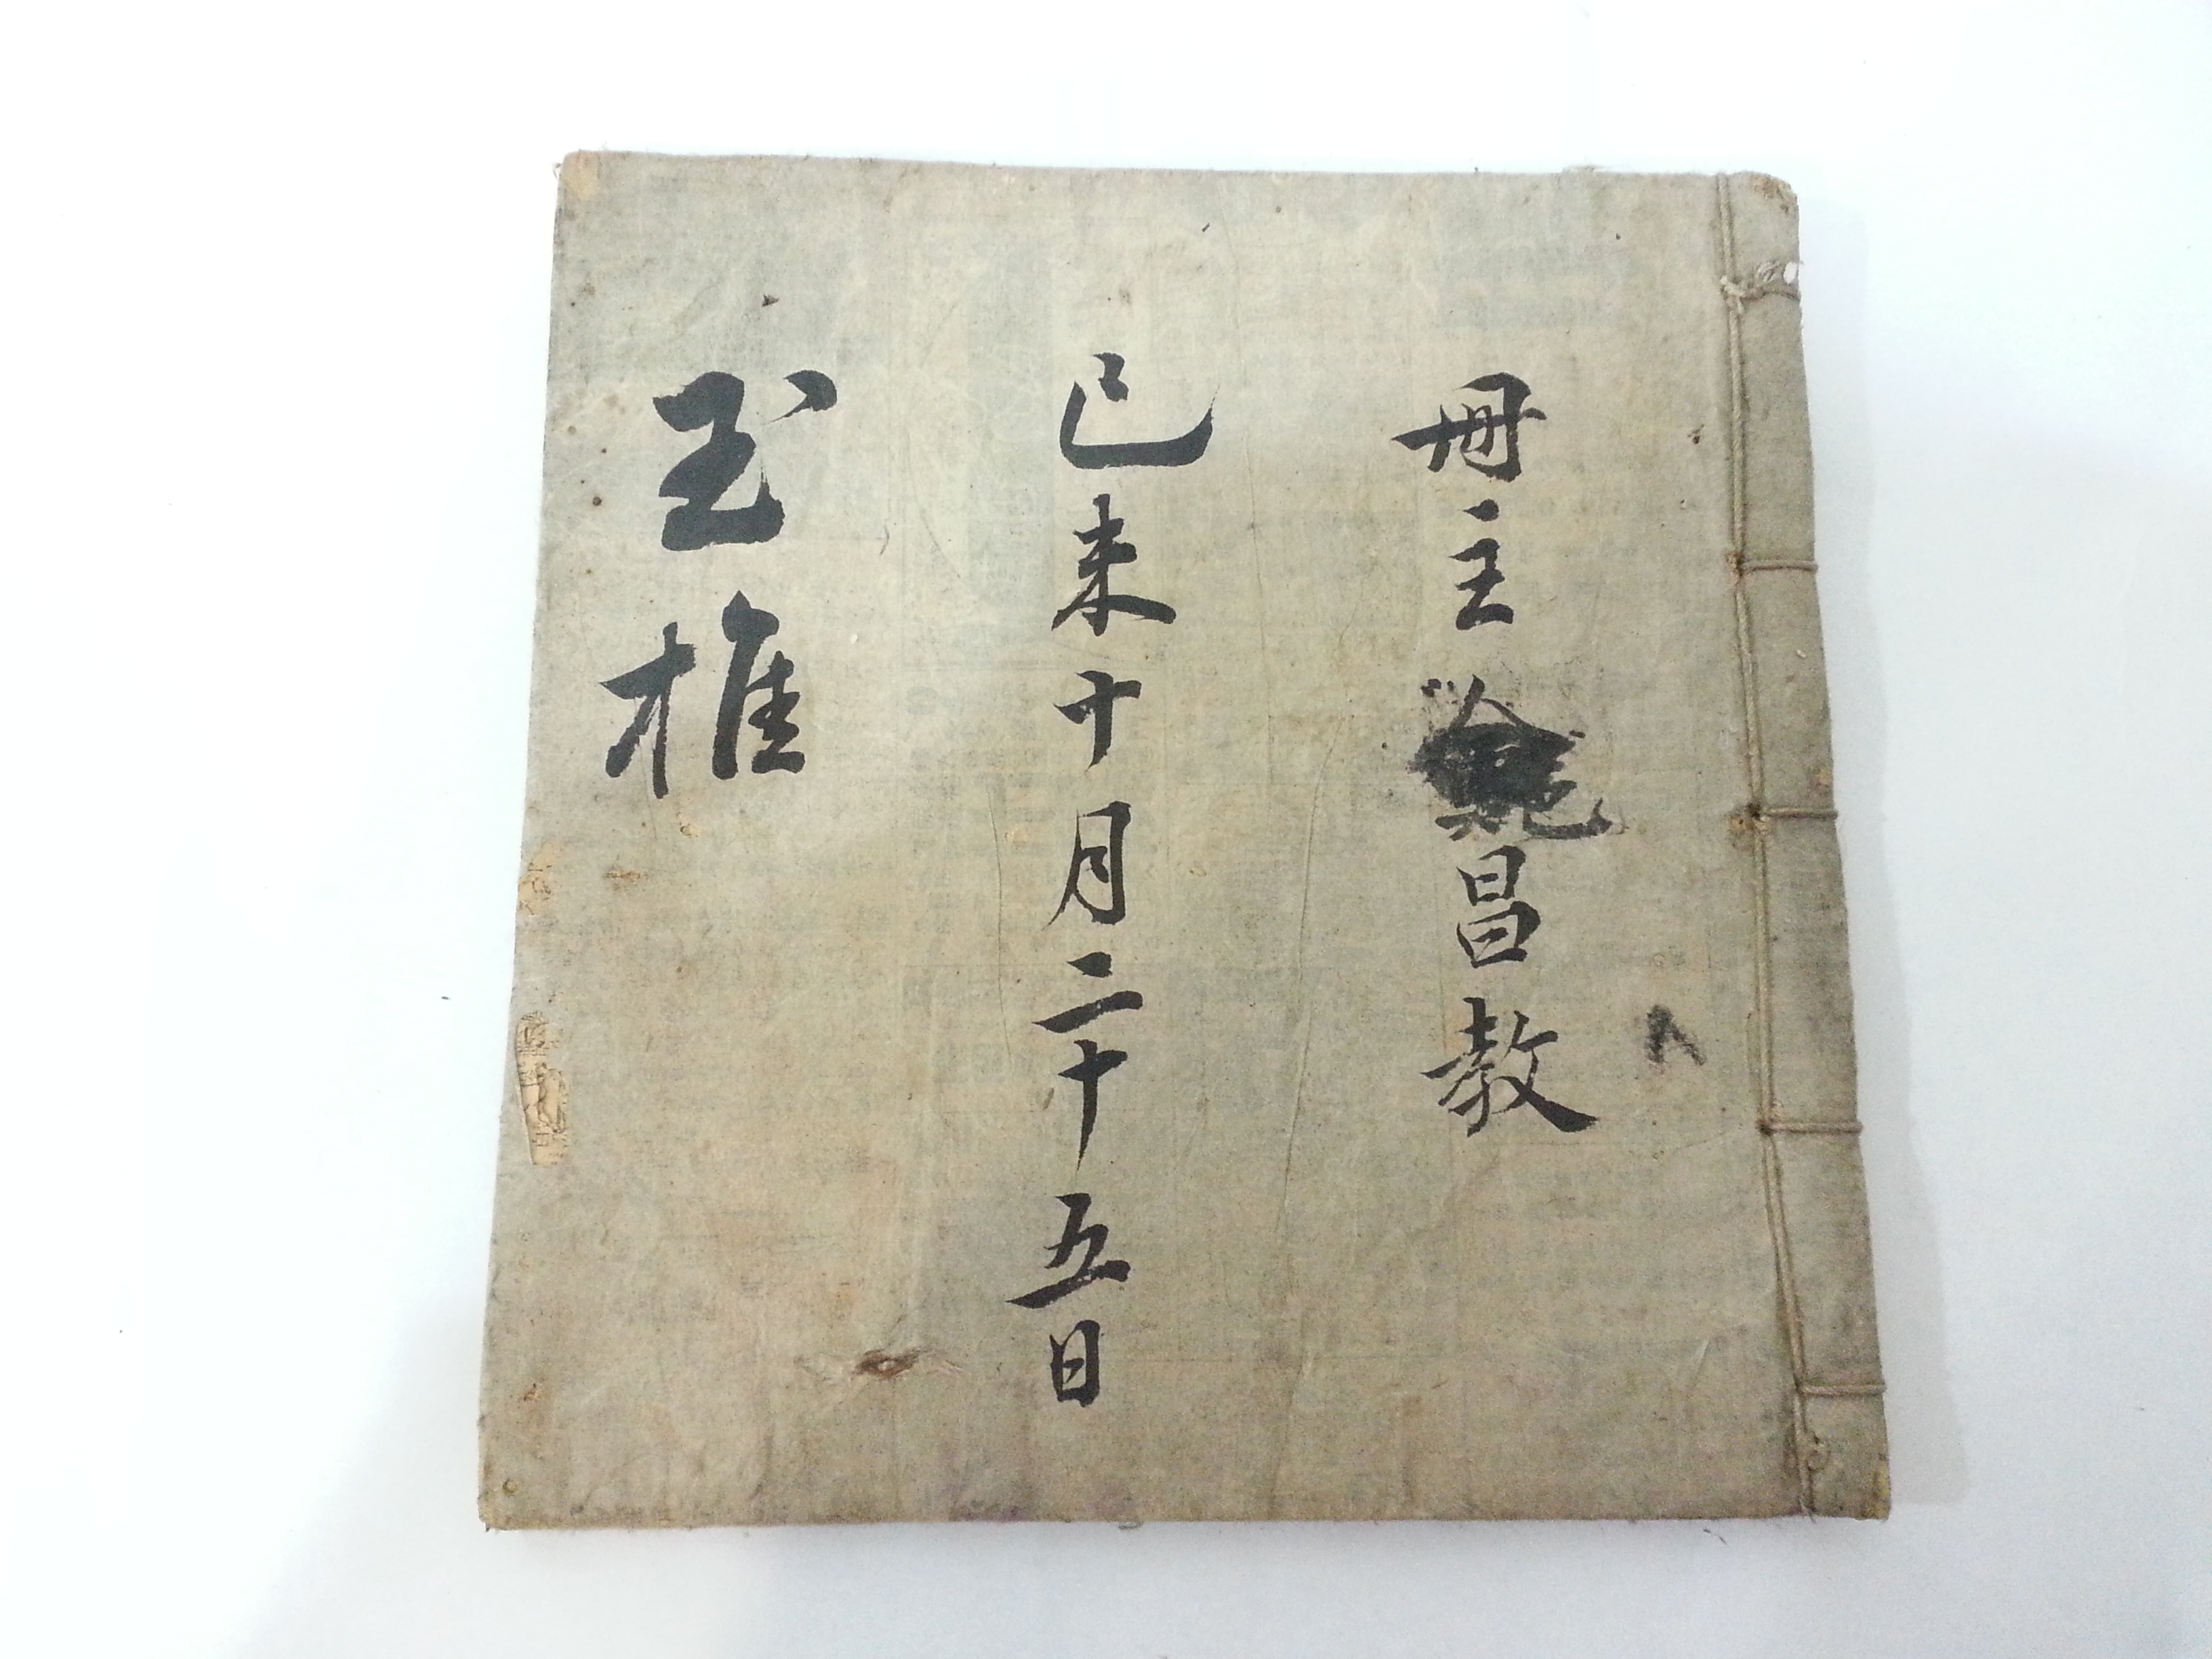 冊主昌教
己未十月二十五日
玉椎